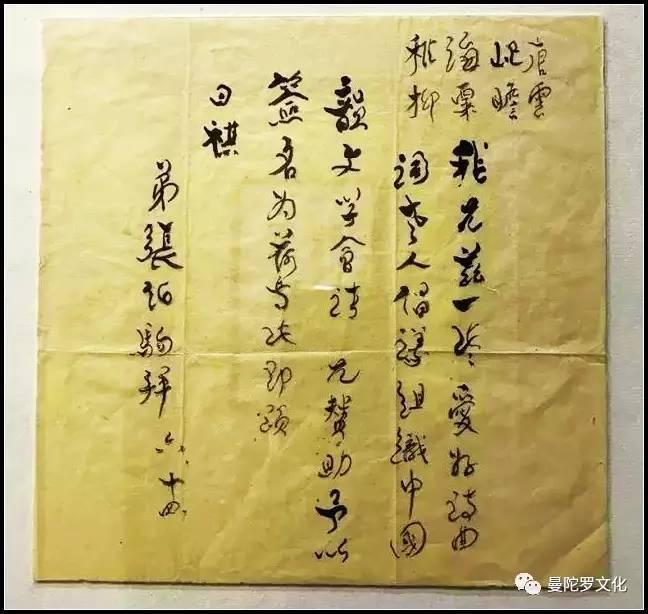 唐雲
屺瞻
海粟
稚柳
兄茲一些愛好詩曲
詞人倡議組織中國
韻文學會請 兄贊助予以
簽名為荷專此即頌
日祺
弟張伯駒拜 六、十四
曼陀罗文化